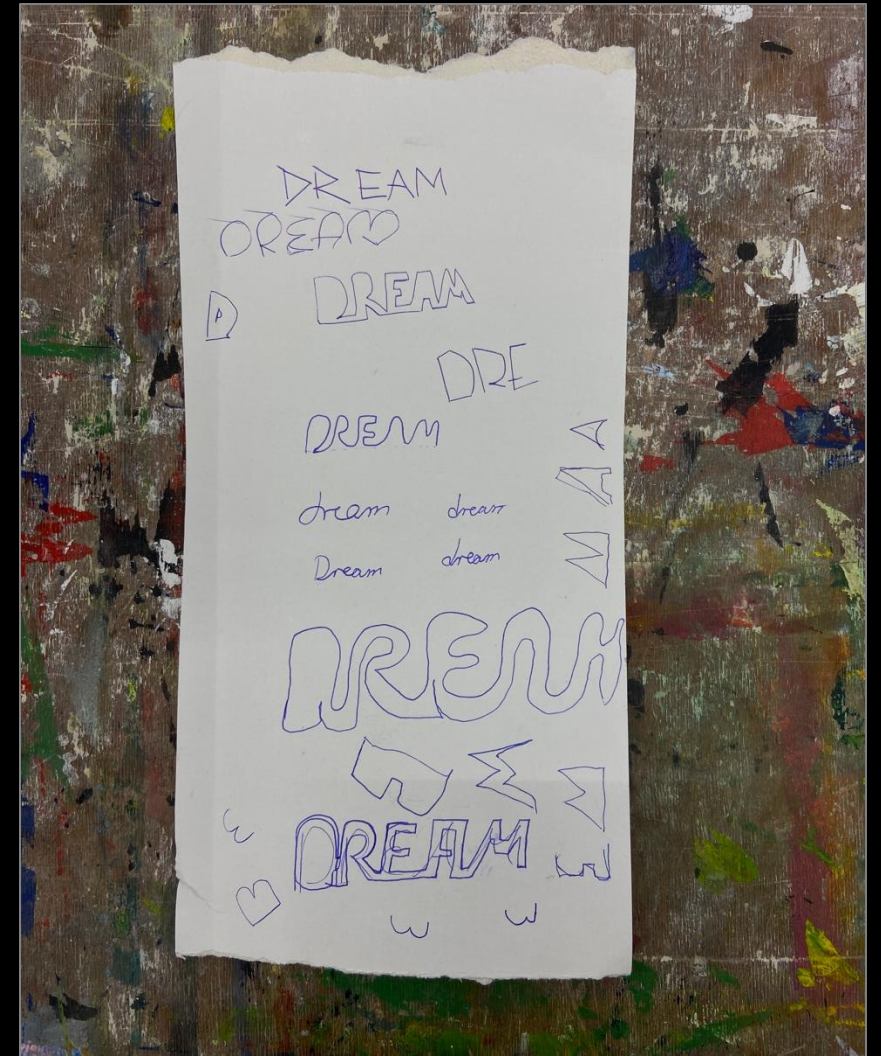 DREAM
DREAM
D DREAM
DRE
DREAM
A
A
dream dream
M
Dream dream
DREAM
M
M
E
DREAM
E
B
E E